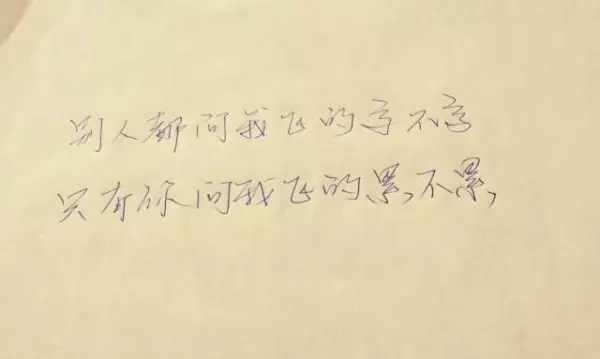 别人都问我飞的高不高
只有你问我飞的累,不累,